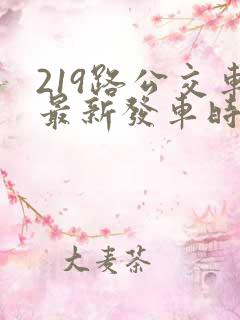 219路公交車
最新發車時
大麦茶